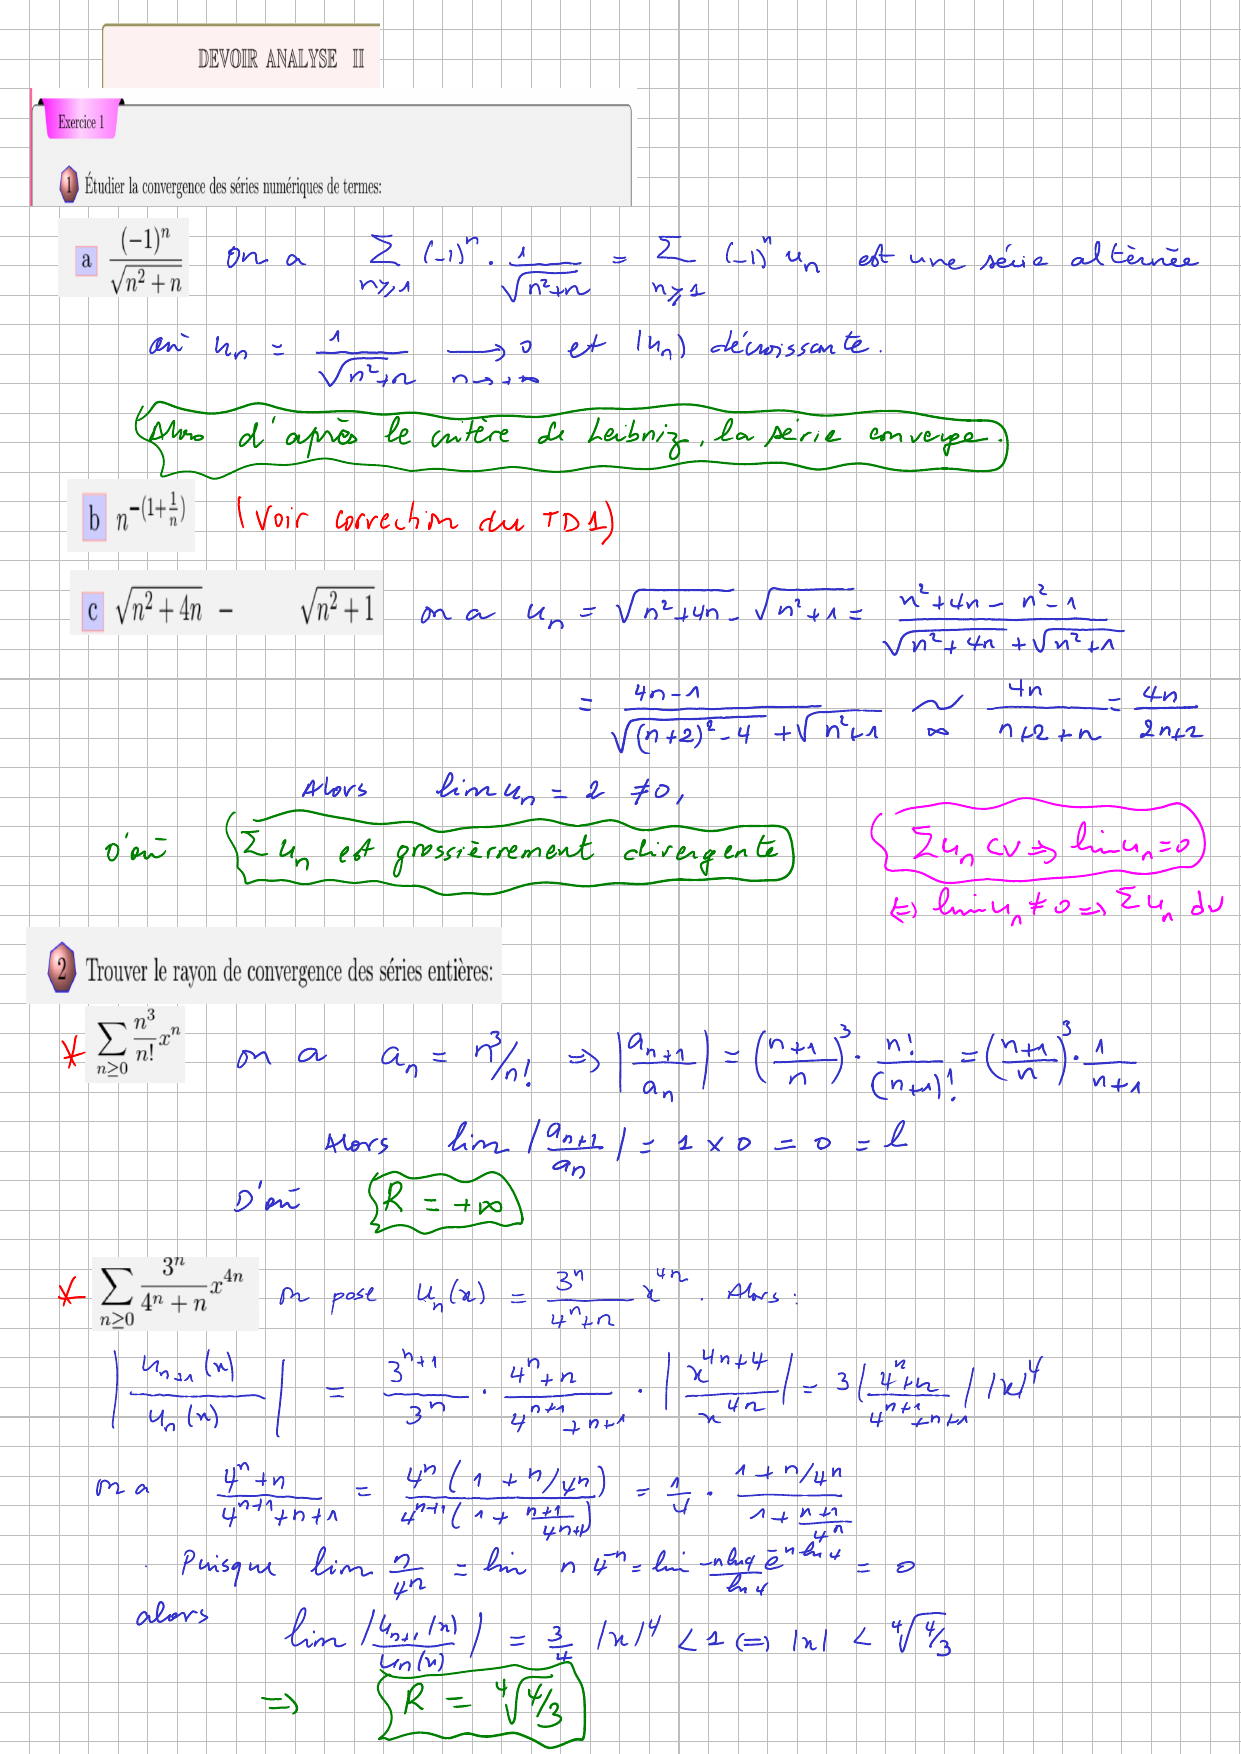 DEVOIR ANALYSE II
Exercice 1
1 Étudier la convergence des séries numériques de termes:
a (-1)^n / √(n²+n) on a Σ_{n≥1} (-1)^n · 1/√(n²+n) = Σ_{n≥1} (-1)^n u_n est une série altèrnée
où u_n = 1/√(n²+n) ⟶_{n→+∞} 0 et (u_n) décroissante.
Alors d'après le critère de Leibniz, la série converge.
b n^{-(1+1/n)} (Voir correction du TD1)
c √(n²+4n) − √(n²+1) on a u_n = √(n²+4n) - √(n²+1) = (n²+4n - n²-1) / (√(n²+4n) + √(n²+1))
= (4n-1) / (√((n+2)²-4) + √(n²+1)) ~_∞ 4n/(n+2+n) = 4n/(2n+2)
Alors lim u_n = 2 ≠ 0,
D'où Σ u_n est grossièrrement divergente
Σ u_n CV ⇒ lim u_n = 0
⇔ lim u_n ≠ 0 ⇒ Σ u_n dv
2 Trouver le rayon de convergence des séries entières:
* Σ_{n≥0} n³/n! x^n on a a_n = n³/n! ⇒ |a_{n+1}/a_n| = ((n+1)/n)³ · n!/(n+1)! = ((n+1)/n)³ · 1/(n+1)
Alors lim |a_{n+1}/a_n| = 1 × 0 = 0 = l
D'où R = +∞
* Σ_{n≥0} 3^n/(4^n+n) x^{4n} on pose u_n(x) = 3^n/(4^n+n) x^{4n}. Alors :
|u_{n+1}(x)/u_n(x)| = 3^{n+1}/3^n · (4^n+n)/(4^{n+1}+n+1) · |x^{4n+4}/x^{4n}| = 3 (4^n+n)/(4^{n+1}+n+1) |x|^4
on a (4^n+n)/(4^{n+1}+n+1) = 4^n(1+n/4^n) / 4^{n+1}(1+(n+1)/4^{n+1}) = 1/4 · (1+n/4^n)/(1+(n+1)/4^n)
Puisque lim n/4^n = lim n 4^{-n} = lim -n ln 4/ln 4 e^{-n ln 4} = 0
alors lim |u_{n+1}(x)/u_n(x)| = 3/4 |x|^4 < 1 ⇔ |x| < ⁴√(4/3)
⇒ R = ⁴√(4/3)